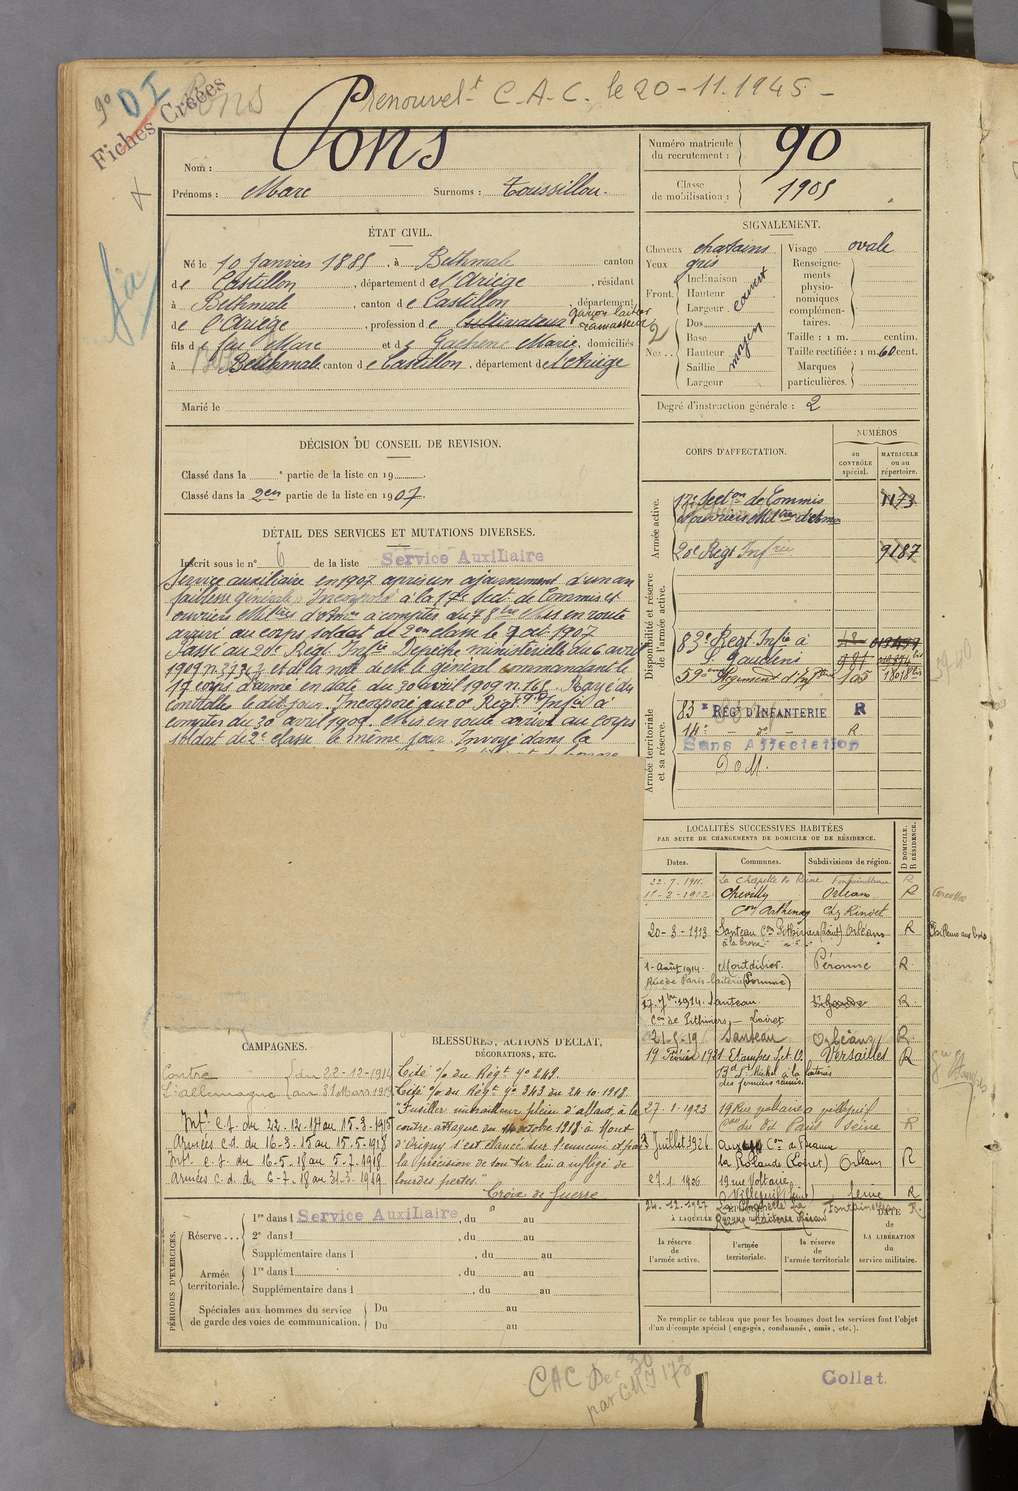 9º DI
Fiches Créées
Pons
Renouvel.t C.A.C. le 20-11.1945-
Nom : Pons
Prénoms : Marc Surnoms : Toussillou.
Numéro matricule du recrutement : 90
Classe de mobilisation : 1905
ÉTAT CIVIL.
Né le 10 Janvier 1885, à Bethmale canton
de Castillon, département de l'Ariège, résidant
à Bethmale, canton de Castillon, département
de l'Ariège, profession de Cultivateur garçon laitier ramasseur
fils de feu Marc et de Gachene Marie, domiciliés
à Bethmale canton de Castillon, département de l'Ariège
Marié le
SIGNALEMENT.
Cheveux chatains
Yeux gris
Front. Inclinaison
Hauteur
Largeur
courert
Nez Dos
Base
Hauteur
Saillie
Largeur
moyen
Visage ovale
Renseignements physionomiques complémentaires.
Taille : 1 m. centim.
Taille rectifiée : 1 m. 60 cent.
Marques particulières.
Degré d'instruction générale : 2
DÉCISION DU CONSEIL DE REVISION.
Classé dans la e partie de la liste en 19
Classé dans la 2em partie de la liste en 1907.
DÉTAIL DES SERVICES ET MUTATIONS DIVERSES.
Inscrit sous le nº 6 de la liste Service Auxiliaire
Service auxiliaire en 1907 après un ajournement d'un an
faiblesse générale. Incorporé à la 17e Sect. de Commis et
ouvriers Milires d'Admon à compter du 7 8bre Mis en route
arrivé au corps soldat de 2em classe le 7 oct. 1907
Passé au 20e Régt. Infie Dépêche ministérielle du 6 avril
1909 n. 3136 et à la note de M. le général commandant le
17 corps d'armée en date du 20 avril 1909 n. 145. Rayé des
contrôles le dit jour. Incorporé au 20e Régt. d'Infie à
compter du 30 avril 1909. Mis en route arrivé au corps
soldat de 2e classe le même jour. Envoyé dans la
CORPS D'AFFECTATION.
NUMÉROS
au CONTRÔLE spécial.
MATRICULE ou au répertoire.
Armée active.
17e Section de Commis
et ouvriers Milres d'admon 1173
20e Régt Infrie 9187
Disponibilité et réserve de l'armée active.
83e Régt. Infie à
St Gaudens
59ème Régiment d'Infie 105
Armée territoriale et sa réserve.
83e RÉGt D'INFANTERIE R
14e - do - R
Sans Affectation
D o M.
LOCALITÉS SUCCESSIVES HABITÉES
PAR SUITE DE CHANGEMENTS DE DOMICILE OU DE RÉSIDENCE.
Dates. Communes. Subdivisions de région. D DOMICILE. R RÉSIDENCE.
22-7-1911. La Chapelle la Reine Fontainebleau R
11-2-1912 Chevilly Orléans R
Con Arthenay Chz Rinvet
20-3-1913 Santeau Con Pithiviers (Loiret) Orléans R
1-Août 1914 Montdidier Péronne R
Rue de Paris laiterie (Somme)
17.7bre 1914 Santeau. St Gaudens R.
Con de Pithiviers - Loiret
21-5-19 Santeau Orléans R.
19 Février 1921 Etampes Set O. Versailles R
Bd St Michel à la laiterie
des fermiers réunis
27-1-1923 19 Rue voltaire à villejuif
Seine R
3 Juillet 1926 Auxy Con de Beaune
la Rolande (Loiret) Orléans R
27.1.1926 19 rue Voltaire
à Villejuif (Seine) Seine R
24.12.1927 La Chapelle La Fontainebleau R.
Reine Laiterie
CAMPAGNES.
Contre du 22-12-1914
L'allemagne au 31 Mars 1919
Int. c.s. du 22-12-14 au 15-3-1915
Armées c.d. du 16-3-15 au 15-5-1918
Int. c.s. du 16-5-18 au 5-7-1918
Armées c.d. du 6-7-18 au 31-3-1919
BLESSURES, ACTIONS D'ÉCLAT, DÉCORATIONS, ETC.
Cité O/ du Régt. nº 249.
Cité O/ du Régt nº 343 du 24-10-1918.
"Fusiller mitrailleur plein d'allant, à la
contre-attaque du 14 octobre 1918 à Mont
d'Origny s'est élancé sur l'ennemi et par
la précision de son tir lui a infligé de
lourdes pertes."
Croix de Guerre
PÉRIODES D'EXERCICES.
Réserve... 1re dans l Service Auxiliaire, du au
2e dans l , du au
Supplémentaire dans l , du au
Armée territoriale. 1re dans l , du au
Supplémentaire dans l , du au
Spéciales aux hommes du service de garde des voies de communication. Du au
Du au
À LAQUELLE
la réserve de l'armée active.
l'armée territoriale.
la réserve de l'armée territoriale
DATE de LA LIBÉRATION du service militaire.
Ne remplir ce tableau que pour les hommes dont les services font l'objet
d'un décompte spécial (engagés, condamnés, omis, etc.).
CAC Dec 30
par CMI 173
Collat.